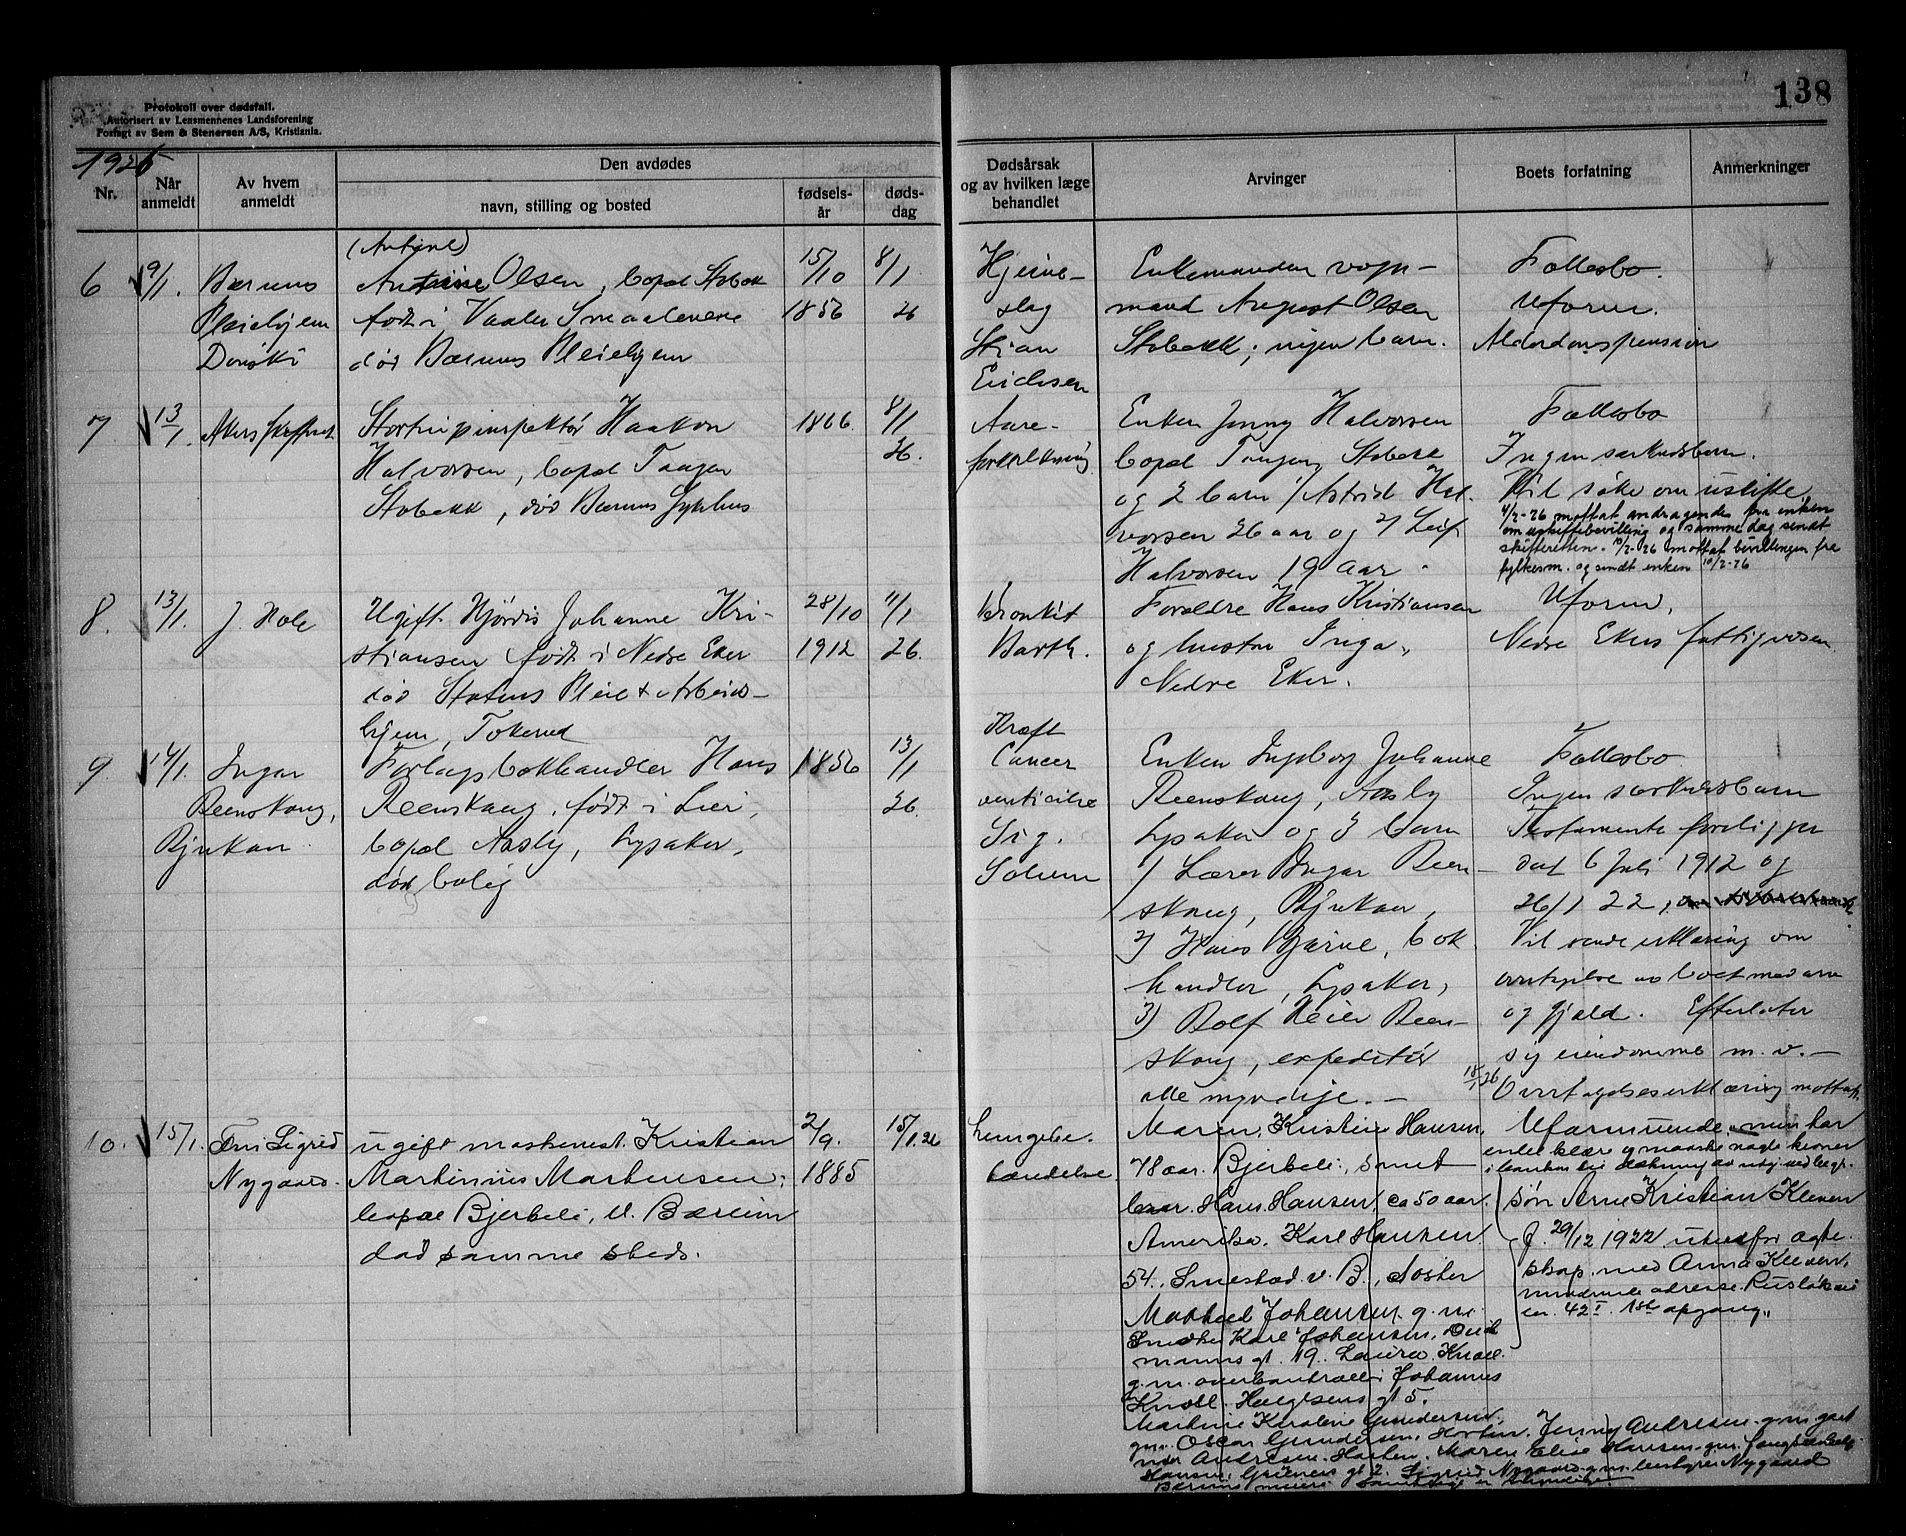 138
Protokoll over dødsfall.
Autorisert av Lensmennenes Landsforening
Forlagt av Sem & Stenersen A/S, Kristiania.
1926
Nr.
Når anmeldt
Av hvem anmeldt
Den avdødes
navn, stilling og bosted
fødsels-år
døds-dag
Dødsårsak og av hvilken læge behandlet
Arvinger
Boets forfatning
Anmerkninger
6
9/1.
Bærums
Pleiehjem
Dønski
(Antine)
Olsen, bopæl Stabæk
født i Vaaler Smaalenene
død Bærums Pleiehjem
15/10
1856
8/1
26
Hjerne-
slag
Stian
Erichsen
Enkemanden vogn-
mand August Olsen
Stabekk; ingen barn.
Fællesbo.
Uformu.
Alderdomspension
7
13/1.
Akers skifteret
Stortingsinspektør Haakon
Halvorsen, bopæl Tangen
Stabekk, død Bærums Sykehus
1866.
8/1
26.
Aare-
forkalkning
Enken Jenny Halvorsen
bopæl Tangen, Stabekk
og 2 barn 1/ Astrid Hal-
vorsen 26 aar og 2/ Leif
Halvorsen 19 aar.
Fællesbo
Ingen særkuldsbarn.
Vil søke om uskifte.
4/2-26 mottat andragende fra enken
om uskiftebevilling og samme dag sendt
skifteretten. 10/2-26 mottat bevillingen fra
fylkesm. og sendt enken 10/2-26
8.
13/1.
J. Hole
Ugift Hjørdis Johanne Kri-
stiansen født i Nedre Eker
død Statens Pleie & Arbeids-
hjem, Tokerud
28/10
1912
11/1
26.
Bronkit
Barth.
Forældre Hans Kristiansen
og hustru Inga,
Nedre Eker.
Uformu.
Nedre Ekers fattigvæsen
9
14/1.
Ingar
Reenskaug,
Rjukan.
Forlagsbokhandler Hans
Reenskaug, født i Lier,
bopæl Aasly, Lysaker,
død bolig
1856
13/1
26.
Kræft
Cancer
ventriculi
Sig.
Solem
Enken Ingeborg Johanne
Reenskaug, Aasly
Lysaker og 3 barn
1/ Lærer Ingar Reen-
skaug, Rjukan,
2/ Hans Bjarne, bok
handler, Lysaker,
3) Rolf Reier Reen-
skaug, expeditør
alle myndige. -
Fællesbo.
Ingen særkuldsbarn
Testamente foreligger
dat 6 Juli 1912 og
26/1 22.
Vil sende erklæring om
overtagelse av boet med arv
og gjæld. Efterlater
sig eiendomme m. v. -
18/1 26 Overtagelseserklæring mottat.
10.
15/1.
Fru Sigrid
Nygaard.
ugift maskinist Kristian
Martinius Martinsen,
bopæl Bjerkeli, V. Bærum
død samme steds.
2/9.
1885
15/1.26
Lungebe-
tændelse
Maren Kristine Hansen,
78 aar. Bjerkeli, samt
Hans Hansen, ca 50 aar.
Amerika. Karl Hansen
54. Smestad v. B., Søster
Mathea Johansen g. m.
Snedker Karl Johansen,
gt. 19. Laura Knoll.
g. m. Johannes
Knoll. Helgesens gt 5.
Martine Karoline Gundersen,
gm. Oscar Gundersen, Horten. Jenny Andresen. g.m.
Andresen. Horten. Maren Elise Hansen. gm.
Hansen, Grüners gt 2. Sigrid Nygaard g.m. Nygaard
Bærums
Uformuende, men har
endel klær og maaske nogle kroner
søn Arne Kristian Kleven
f. 29/12 1922 utenfor ægte-
skap med Anna Kleven,
nuværende adresse Ruseløkvei
en 42 I. 1ste opgang.